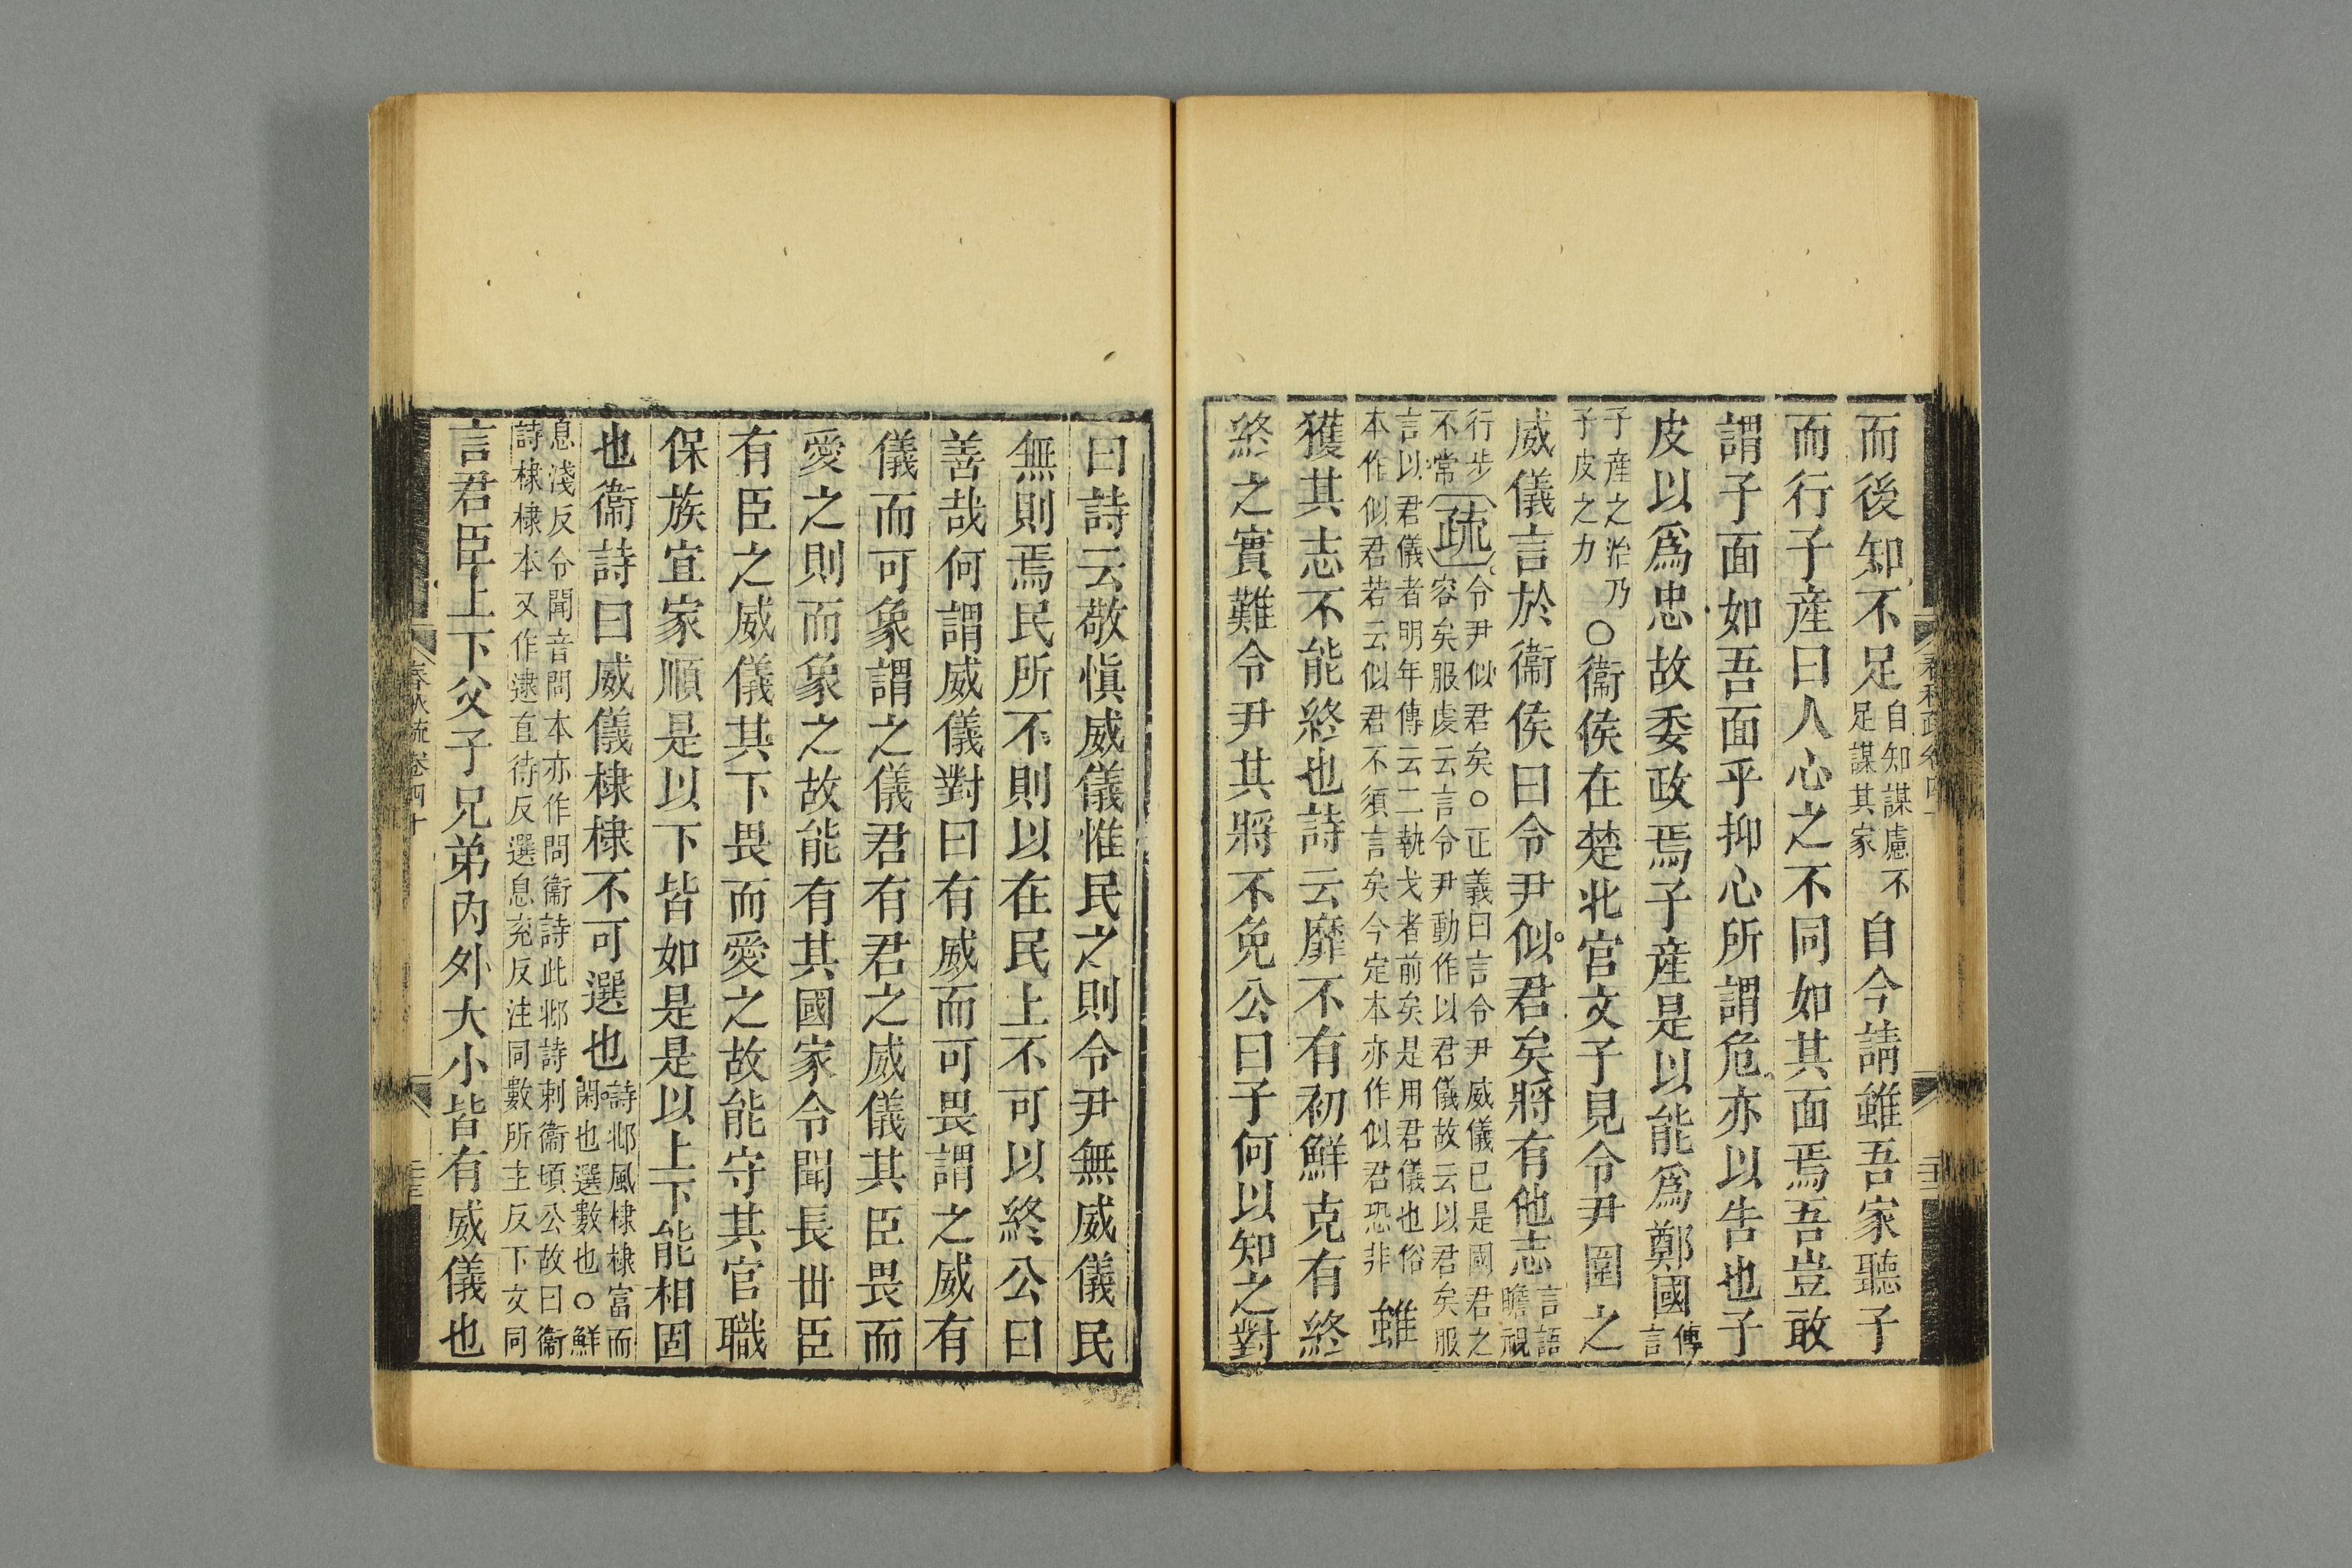 而後知不足自知謀慮不足謀其家自今請雖吾家聽子
而行子産曰人心之不同如其面焉吾豈敢
謂子面如吾面乎抑心所謂危亦以告也子
皮以爲忠故委政焉子産是以能爲鄭國傳言
子産之治乃子皮之力○衞侯在楚北宮文子見令尹圍之
威儀言於衞侯曰令尹似君矣將有他志言語瞻視
行步不常疏令尹似君矣○正義曰言令尹威儀已是國君之容矣服虔云言令尹動作以君儀故云以君矣服
言以君儀者明年傳云二執戈者前矣是用君儀也俗本作似君若云似君不須言矣今定本亦作似君恐非雖
獲其志不能終也詩云靡不有初鮮克有終
終之實難令尹其將不免公曰子何以知之對
曰詩云敬愼威儀惟民之則令尹無威儀民
無則焉民所不則以在民上不可以終公曰
善哉何謂威儀對曰有威而可畏謂之威有
儀而可象謂之儀君有君之威儀其臣畏而
愛之則而象之故能有其國家令聞長世臣
有臣之威儀其下畏而愛之故能守其官職
保族宜家順是以下皆如是是以上下能相固
也衞詩曰威儀棣棣不可選也詩邶風棣棣富而閑也選數也○鮮
息淺反令聞音問本亦作問衞詩此邶詩刺衞頃公故曰衞詩棣棣本又作逮直待反選息兖反注同數所主反下文同
言君臣上下父子兄弟内外大小皆有威儀也
春秋疏卷四十